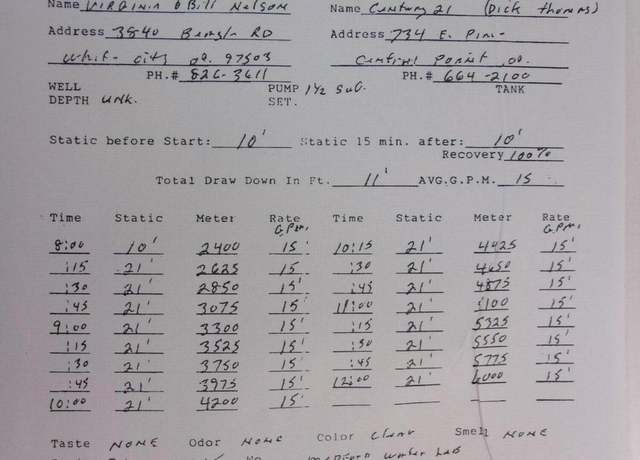 Name Virginia & Bill Nelson Name Century 21 (Dick Thomas)
Address 3840 Beagle RD Address 734 E. Pine
White City OR. 97503 Central Point OR.
PH.# 826-3611 PH.# 664-2100
WELL PUMP 1½ Sub. TANK
DEPTH unk. SET.
Static before Start: 10' Static 15 min. after: 10'
Recovery 100%
Total Draw Down In Ft. 11' AVG.G.P.M. 15
Time Static Meter Rate Time Static Meter Rate
G.P.M. G.P.M.
8:00 10' 2400 15' 10:15 21' 4425 15'
:15 21' 2625 15 :30 21' 4650 15'
:30 21' 2850 15' :45 21' 4875 15'
:45 21' 3075 15' 11:00 21' 5100 15'
9:00 21' 3300 15' :15 21' 5325 15'
:15 21' 3525 15' :30 21' 5550 15'
:30 21' 3750 15' :45 21' 5775 15'
:45 21' 3975 15' 12:00 21' 6000 15'
10:00 21' 4200 15'
Taste NONE Odor NONE Color Clear Smell NONE
Medford Water Lab